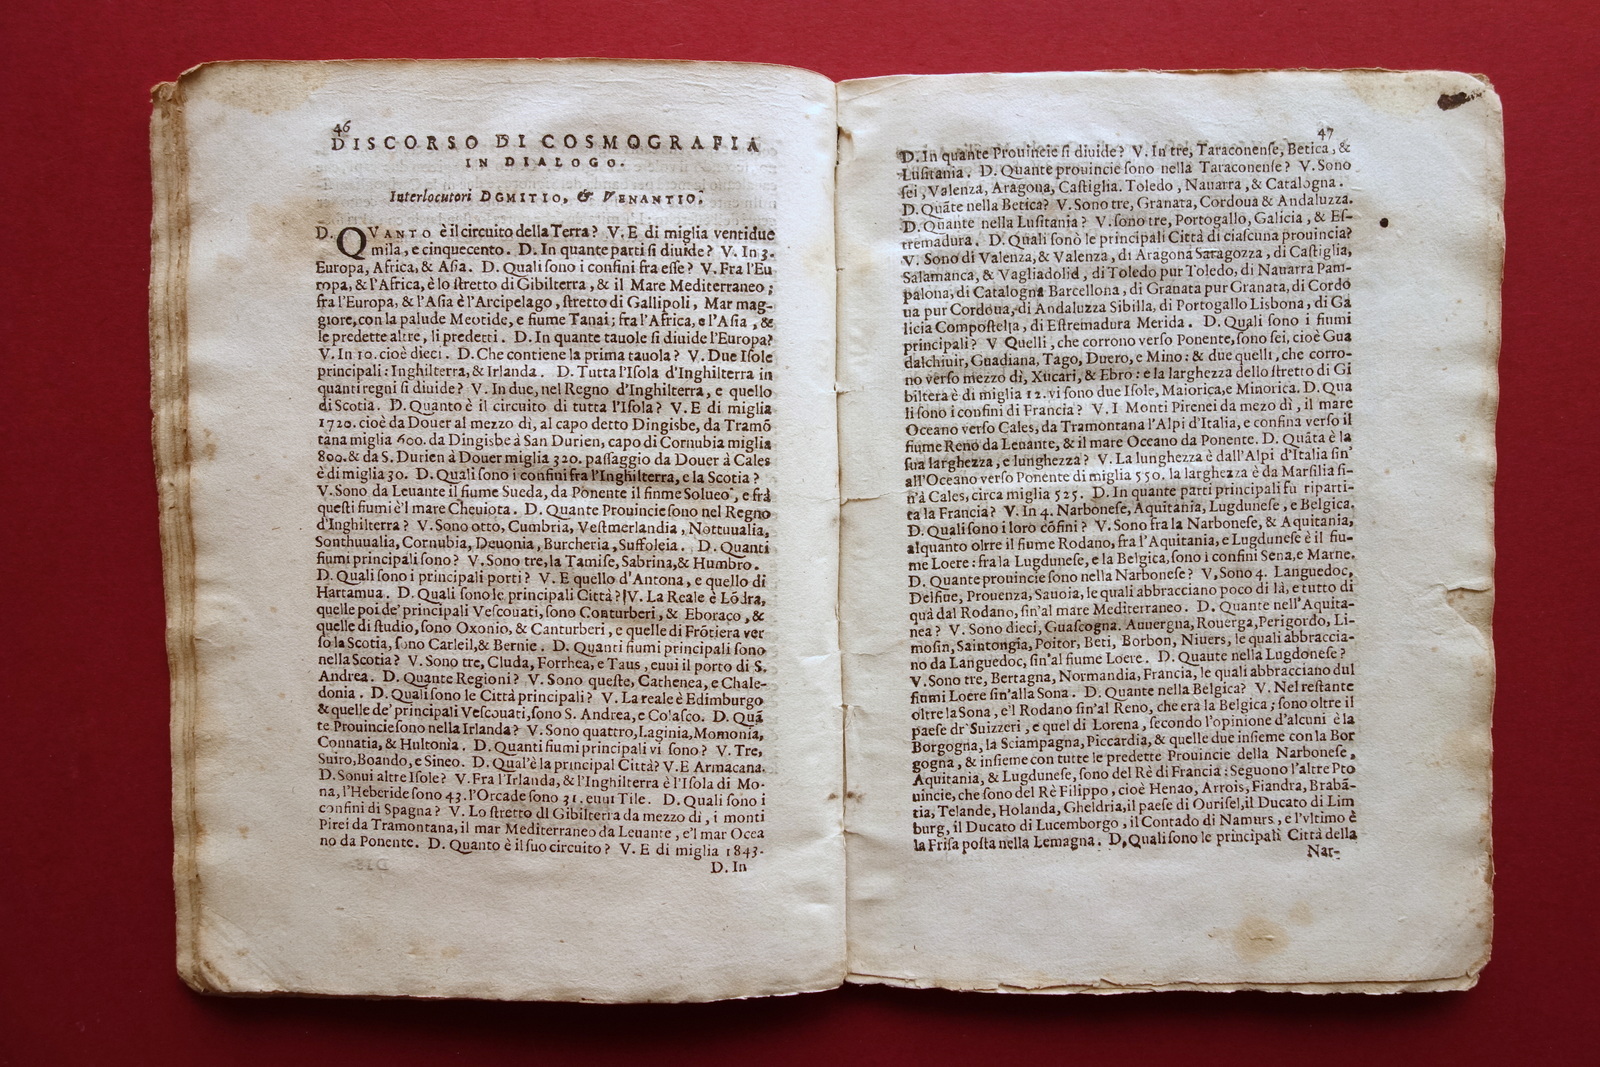 46
DISCORSO DI COSMOGRAFIA
IN DIALOGO.
Interlocutori DOMITIO, & VENANTIO.
D. QVANTO è il circuito della Terra? V. E di miglia ventidue
mila, e cinquecento. D. In quante parti si diuide? V. In 3.
Europa, Africa, & Asia. D. Quali sono i confini fra esse? V. Fra l'Eu
ropa, & l'Africa, è lo stretto di Gibilterra, & il Mare Mediterraneo;
fra l'Europa, & l'Asia è l'Arcipelago, stretto di Gallipoli, Mar mag-
giore, con la palude Meotide, e fiume Tanai; fra l'Africa, e l'Asia, &
le predette altre, li predetti. D. In quante tauole si diuide l'Europa?
V. In 10. cioè dieci. D. Che contiene la prima tauola? V. Due Isole
principali: Inghilterra, & Irlanda. D. Tutta l'Isola d'Inghilterra in
quanti regni si diuide? V. In due, nel Regno d'Inghilterra, e quello
di Scotia. D. Quanto è il circuito di tutta l'Isola? V. E di miglia
1720. cioè da Douer al mezzo dì, al capo detto Dingisbe, da Tramõ
tana miglia 600. da Dingisbe à San Durien, capo di Cornubia miglia
800. & da S. Durien à Douer miglia 320. passaggio da Douer à Cales
è di miglia 30. D. Quali sono i confini fra l'Inghilterra, e la Scotia?
V. Sono da Leuante il fiume Sueda, da Ponente il finme Solueo, e frà
questi fiumi è'l mare Cheuiota. D. Quante Prouincie sono nel Regno
d'Inghilterra? V. Sono otto, Cumbria, Vestmerlandia, Nottuualia,
Sonthuualia, Cornubia, Deuonia, Burcheria, Suffoleia. D. Quanti
fiumi principali sono? V. Sono tre, la Tamise, Sabrina, & Humbro.
D. Quali sono i principali porti? V. E quello d'Antona, e quello di
Hartamua. D. Quali sono le principali Città? V. La Reale è Lõdra,
quelle poi de' principali Vescouati, sono Conturberi, & Eboraco, &
quelle di studio, sono Oxonio, & Canturberi, e quelle di Frõtiera ver
so la Scotia, sono Carleil, & Bernie. D. Quanti fiumi principali sono
nella Scotia? V. Sono tre, Cluda, Forrhea, e Taus, euui il porto di S.
Andrea. D. Quante Regioni? V. Sono queste, Cathenea, e Chale-
donia. D. Quali sono le Città principali? V. La reale è Edimburgo
& quelle de' principali Vescouati, sono S. Andrea, e Colasco. D. Quã
te Prouincie sono nella Irlanda? V. Sono quattro, Laginia, Momonia,
Connatia, & Hultonia. D. Quanti fiumi principali vi sono? V. Tre,
Suiro, Boando, e Sineo. D. Qual'è la principal Città? V. E Armacana.
D. Sonui altre Isole? V. Fra l'Irlanda, & l'Inghilterra è l'Isola di Mo-
na, l'Heberide sono 43. l'Orcade sono 31. euui Tile. D. Quali sono i
confini di Spagna? V. Lo stretto dI Gibilterra da mezzo dì, i monti
Pirei da Tramontana, il mar Mediterraneo da Leuante, e'l mar Ocea
no da Ponente. D. Quanto è il suo circuito? V. E di miglia 1843.
D. In
47
D. In quante Prouincie si diuide? V. In tre, Taraconense, Betica, &
Lusitania. D. Quante prouincie sono nella Taraconense? V. Sono
sei, Valenza, Aragona, Castiglia. Toledo, Nauarra, & Catalogna.
D. Quãte nella Betica? V. Sono tre, Granata, Cordoua & Andaluzza.
D. Quante nella Lusitania? V. sono tre, Portogallo, Galicia, & Es-
tremadura. D. Quali sono le principali Città di ciascuna prouincia?
V. Sono di Valenza, & Valenza, di Aragona Saragozza, di Castiglia,
Salamanca, & Vagliadolid, di Toledo pur Toledo, di Nauarra Pam-
palona, di Catalogna Barcellona, di Granata pur Granata, di Cordo
ua pur Cordoua, di Andaluzza Sibilla, di Portogallo Lisbona, di Ga
licia Compostella, di Estremadura Merida. D. Quali sono i fiumi
principali? V Quelli, che corrono verso Ponente, sono sei, cioè Gua
dalchiuir, Guadiana, Tago, Duero, e Mino: & due quelli, che corro-
no verso mezzo dì, Xucari, & Ebro: e la larghezza dello stretto di Gi
bilterà è di miglia 12. vi sono due Isole, Maiorica, e Minorica. D. Qua
li sono i confini di Francia? V. I Monti Pirenei da mezo dì, il mare
Oceano verso Cales, da Tramontana l'Alpi d'Italia, e confina verso il
fiume Reno da Leuante, & il mare Oceano da Ponente. D. Quãta è la
sua larghezza, e lunghezza? V. La lunghezza è dall'Alpi d'Italia sin'
all'Oceano verso Ponente di miglia 550. la larghezza è da Marsilia si-
n'à Cales, circa miglia 525. D. In quante parti principali fu riparti-
ta la Francia? V. In 4. Narbonese, Aquitania, Lugdunese, e Belgica.
D. Quali sono i loro cõfini? V. Sono fra la Narbonese, & Aquitania,
alquanto oltre il fiume Rodano, fra l'Aquitania, e Lugdunese è il fiu-
me Loere: fra la Lugdunese, e la Belgica, sono i confini Sena, e Marne.
D. Quante prouincie sono nella Narbonese? V, Sono 4. Languedoc,
Delfine, Prouenza, Sauoia, le quali abbracciano poco di là, e tutto di
quà dal Rodano, sin'al mare Mediterraneo. D. Quante nell'Aquita-
nea? V. Sono dieci, Guascogna. Auuergna, Rouerga, Perigordo, Li-
mosin, Saintongia, Poitor, Beti, Borbon, Niuers, le quali abbraccia-
no da Languedoc, sin'al fiume Loere. D. Quaute nella Lugdonese?
V. Sono tre, Bertagna, Normandia, Francia, le quali abbracciano dul
fiumi Loere sin'alla Sona. D. Quante nella Belgica? V. Nel restante
oltre la Sona, e'l Rodano sin'al Reno, che era la Belgica; sono oltre il
paese dr' Suizzeri, e quel di Lorena, secondo l'opinione d'alcuni è la
Borgogna, la Sciampagna, Piccardia, & quelle due insieme con la Bor
gogna, & insieme con tutte le predette Prouincie della Narbonese,
Aquitania, & Lugdunese, sono del Rè di Francia: Seguono l'altre Pro
uincie, che sono del Rè Filippo, cioè Henao, Arrois, Fiandra, Brabã-
tia, Telande, Holanda, Gheldria, il paese di Ourisel, il Ducato di Lim
burg, il Ducato di Lucemborgo, il Contado di Namurs, e l'vltimo è
la Frisa posta nella Lemagna. D, Quali sono le principali Città della
Nar-